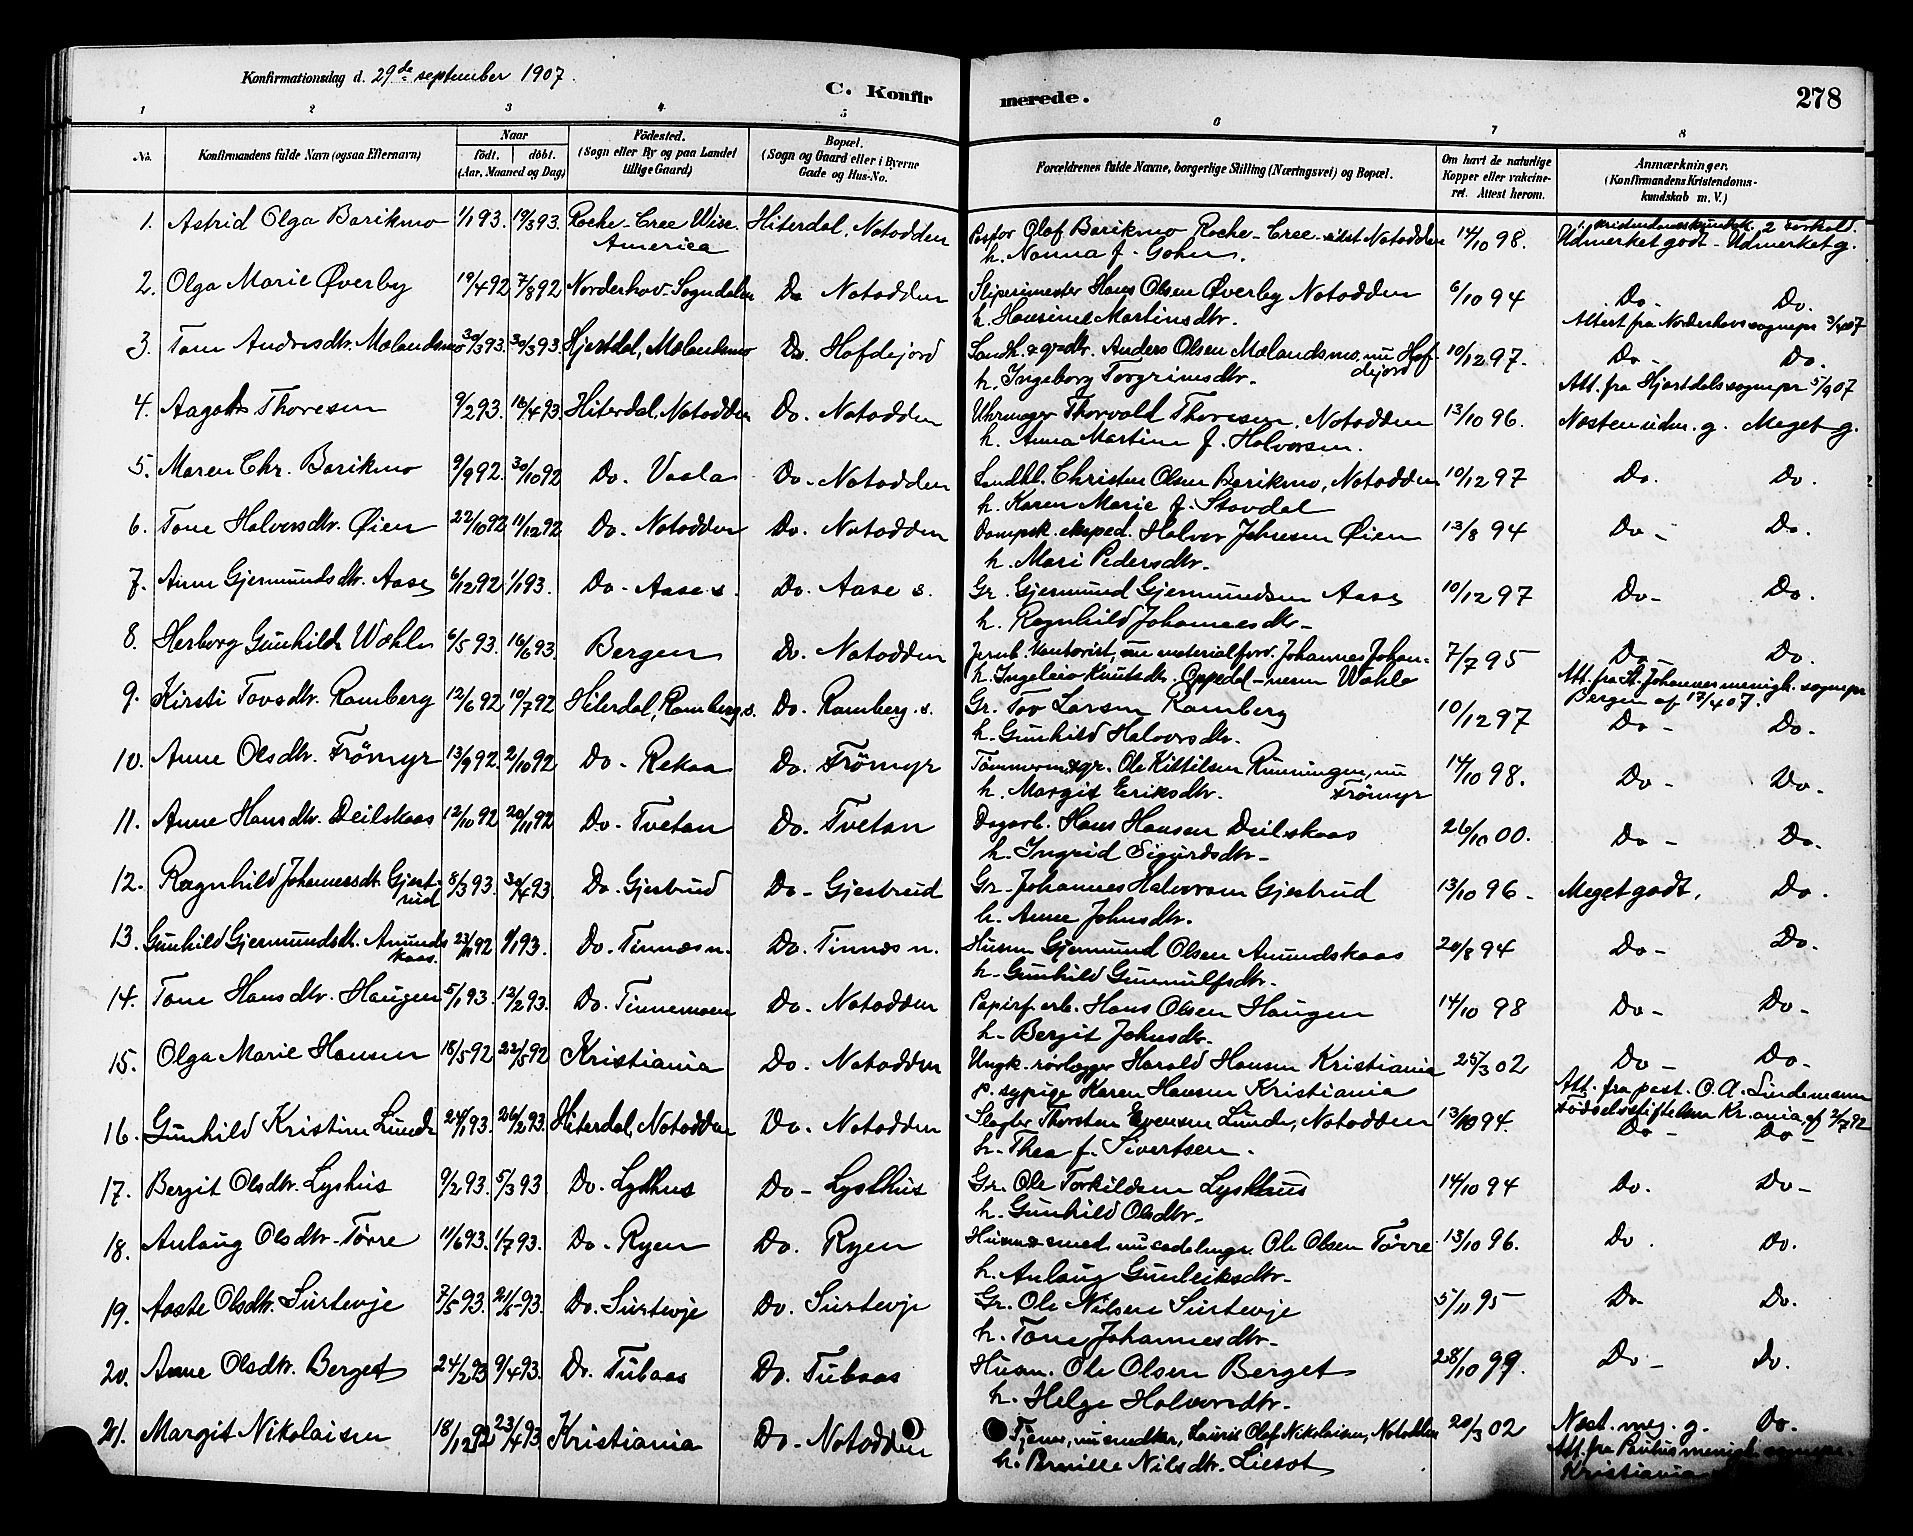 Konfirmationsdag d. 29de september 1907.
C. Konfirmerede.
278
1 2 3 4 5 6 7 8
No. Konfirmandens fulde Navn (ogsaa Efternavn) Naar født. døbt. (Aar, Maaned og Dag) Födested. (Sogn eller By og paa Landet tillige Gaard) Bopæl. (Sogn og Gaard eller i Byerne Gade og Hus-No. Forældrenes fulde Navne, borgerlige Stilling (Næringsvei) og Bopæl. Om havt de naturlige Kopper eller vakcineret. Attest herom. Anmærkninger. (Konfirmandens Kristendomskundskab m. V.)
1. Astrid Olga Borikmo 1/1 93. 19/3 93. Roche-Cree Wise. America Hiterdal, Notodden Pastor Olaf Borikmo Roche-Cree - sidst Notodden 14/10 98. 1. kristendomskundsk. 2 forhold.
h. Nanna f. Udmerket godt - Udmerket g.
2. Olga Marie Øverby 19/4 92 7/8 92 Norderhov - Sogndalen Do Notodden Sliperimester Hans Olsen Øverby Notodden 6/10 94 Do - Do.
h. Hansine Martinsdtr. Attest fra Norderhovs sognepr
3. Tone Andersdtr. Mælandsmo 30/3 93. Hjertdal, Mælandsmo Do. Hofdejord Landh. & grdbr. Anders Olsen Mælandsmo, nu Hofdejord 10/12 97. Do - Do.
h. Ingeborg Torgrimsdtr. Att. fra Hjertdals sognepr 5/9 07
4. Aagot Thoresen 9/2 93. 16/4 93 Hiterdal, Notodden Do. Notodden Uhrmager Thorvald Thoresen, Notodden 13/10 96. Næsten udm. g. Meget g.
h. Anna Martine f. Halvorsen.
5. Maren Chr. Borikmo 9/9 92. 30/10 92 Do. Vaala Do. Notodden Landhl. Christen Olsen Borikmo, Notodden 10/12 97 Do. Do.
h. Karen Marie f. Stovdal
6. Tone Halvorsdtr. Øien 22/10 92 11/12 92 Do. Notodden Do. Notodden Dampsk. eksped. Halvor Johnsen Øien 13/8 94 Do - Do.
h. Mari Pedersdtr.
7. Anne Gjermundsdtr. Aase 6/12 92 1/1 93. Do - Aase s. Do. Aase s. Gr. Gjermund Gjermundsen Aase 10/12 97 Do - Do.
h. Ragnhild Johannesdtr -
8. Herborg Gunhild Wæhle 6/5 93. 16/6 93. Bergen Do. Notodden Jernb. kontorist, nu materialforv. Johannes Johan. 7/7 95 Do Do.
h. Ingeleiv Knutsdtr. Oppedal - nesen Wæhle Att. fra St. Johannes menigh. sognepr Bergen af 17/4 07.
9. Kirsti Tovsdtr. Ramberg 12/6 92 10/7 92 Hiterdal, Ramberg s. Do. Ramberg. s. Gr. Tov Larsen Ramberg 10/12 97 Do - Do.
h. Gunhild Halvorsdtr.
10. Anne Olsdtr. Frömyr 13/9 92. 2/10 92 Do - Rekaa Do. Frömyr Tømmerm. & gr. Ole Kittilsen Runningen, nu Frömyr 14/10 98. Do - Do.
h. Margit Eriksdtr.
11. Anne Hansdtr. Deilskaas 12/10 92 20/11 92 Do - Tvetan Do. Tvetan Dagarb. Hans Hansen Deilskaas 26/10 00. Do - Do.
h. Ingrid Sigurdsdtr -
12. Ragnhild Johannesdtr. Gjestrud 8/3 93. 30/4 93. Do. Gjestrud Do - Gjestrud Gr. Johannes Halvorsen Gjestrud 13/10 96 - Meget godt, Do.
h. Anne Johnsdtr.
13. Gunhild Gjermundsdtr. Amundskaas. 92 1/1 93. Do. Tinnæs n. Do. Tinnæs n. Husm. Gjermund Olsen Amundskaas 20/8 94 Do - Do.
h. Gunhild Gunnulfsdtr.
14. Tone Hansdtr. Haugen 5/1 93. 12/2 93. Do. Tinnemoen Do. Notodden Papirf. arb. Hans Olsen Haugen 14/10 98 Do - Do -
h. Bergit Johnsdtr.
15. Olga Marie Hansen 18/5 92 22/5 92 Kristiania Do. Notodden Ungk. rørlægger Harald Hansen Kristiania 25/3 02 Do - Do -
p. sypige Karen Hansen Kristiania Att. fra past. O. A. Lindeman Födselsstiftelsen Kr.ania, af
16. Gunhild Kristine Lunde 24/1 93. 26/2 93. Hiterdal, Notodden Do. Notodden Slagter Thorsten Evensen Lunde, Notodden 13/10 94. Do - Do -
h. Thea f. Sivertsen.
17. Bergit Olsdtr. Lyshus 9/2 93. 5/3 93 Do. Lysthus Do - Lysthus Gr. Ole Torkildsen Lysthus 14/10 94 Do. Do -
h. Gunhild Olsdtr.
18. Anlaug Olsdtr. Tövre 11/6 93. 1/7 93. Do - Ryen Do. Ryen Husm. & smed, nu sadelmgr. Ole Olsen Tövre 13/10 96. Do. Do.
h. Anlaug Gunleiksdtr -
19. Aaste Olsdtr. Surtevje 7/5 93. 21/5 93. Do. Surtevje Do. Surtevje Gr. Ole Nilsen Surtevje 5/11 95 Do - Do.
h. Tone Johannesdtr -
20. Anne Olsdtr. Berget 24/2 93 9/4 93. Do. Tubaas Do. Tubaas Husm. Ole Olsen Berget 28/10 99. Do - Do.
h. Helge Halvorsdtr.
21. Margit Nikolaisen 18/12 92 23/4 93 Kristiania Do - Notodden Tjener, nu snedker, Laurits Olaf Nikolaisen, Notodden 20/3 02 Næst. meg. g. Do.
h. Pernille Nilsdtr. Att. fra Paulus menigh. sognepr. Kristiania